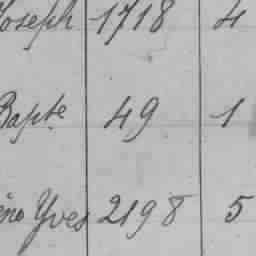 Joseph 1718 4
Bapte 49 1
Yves 2198 5